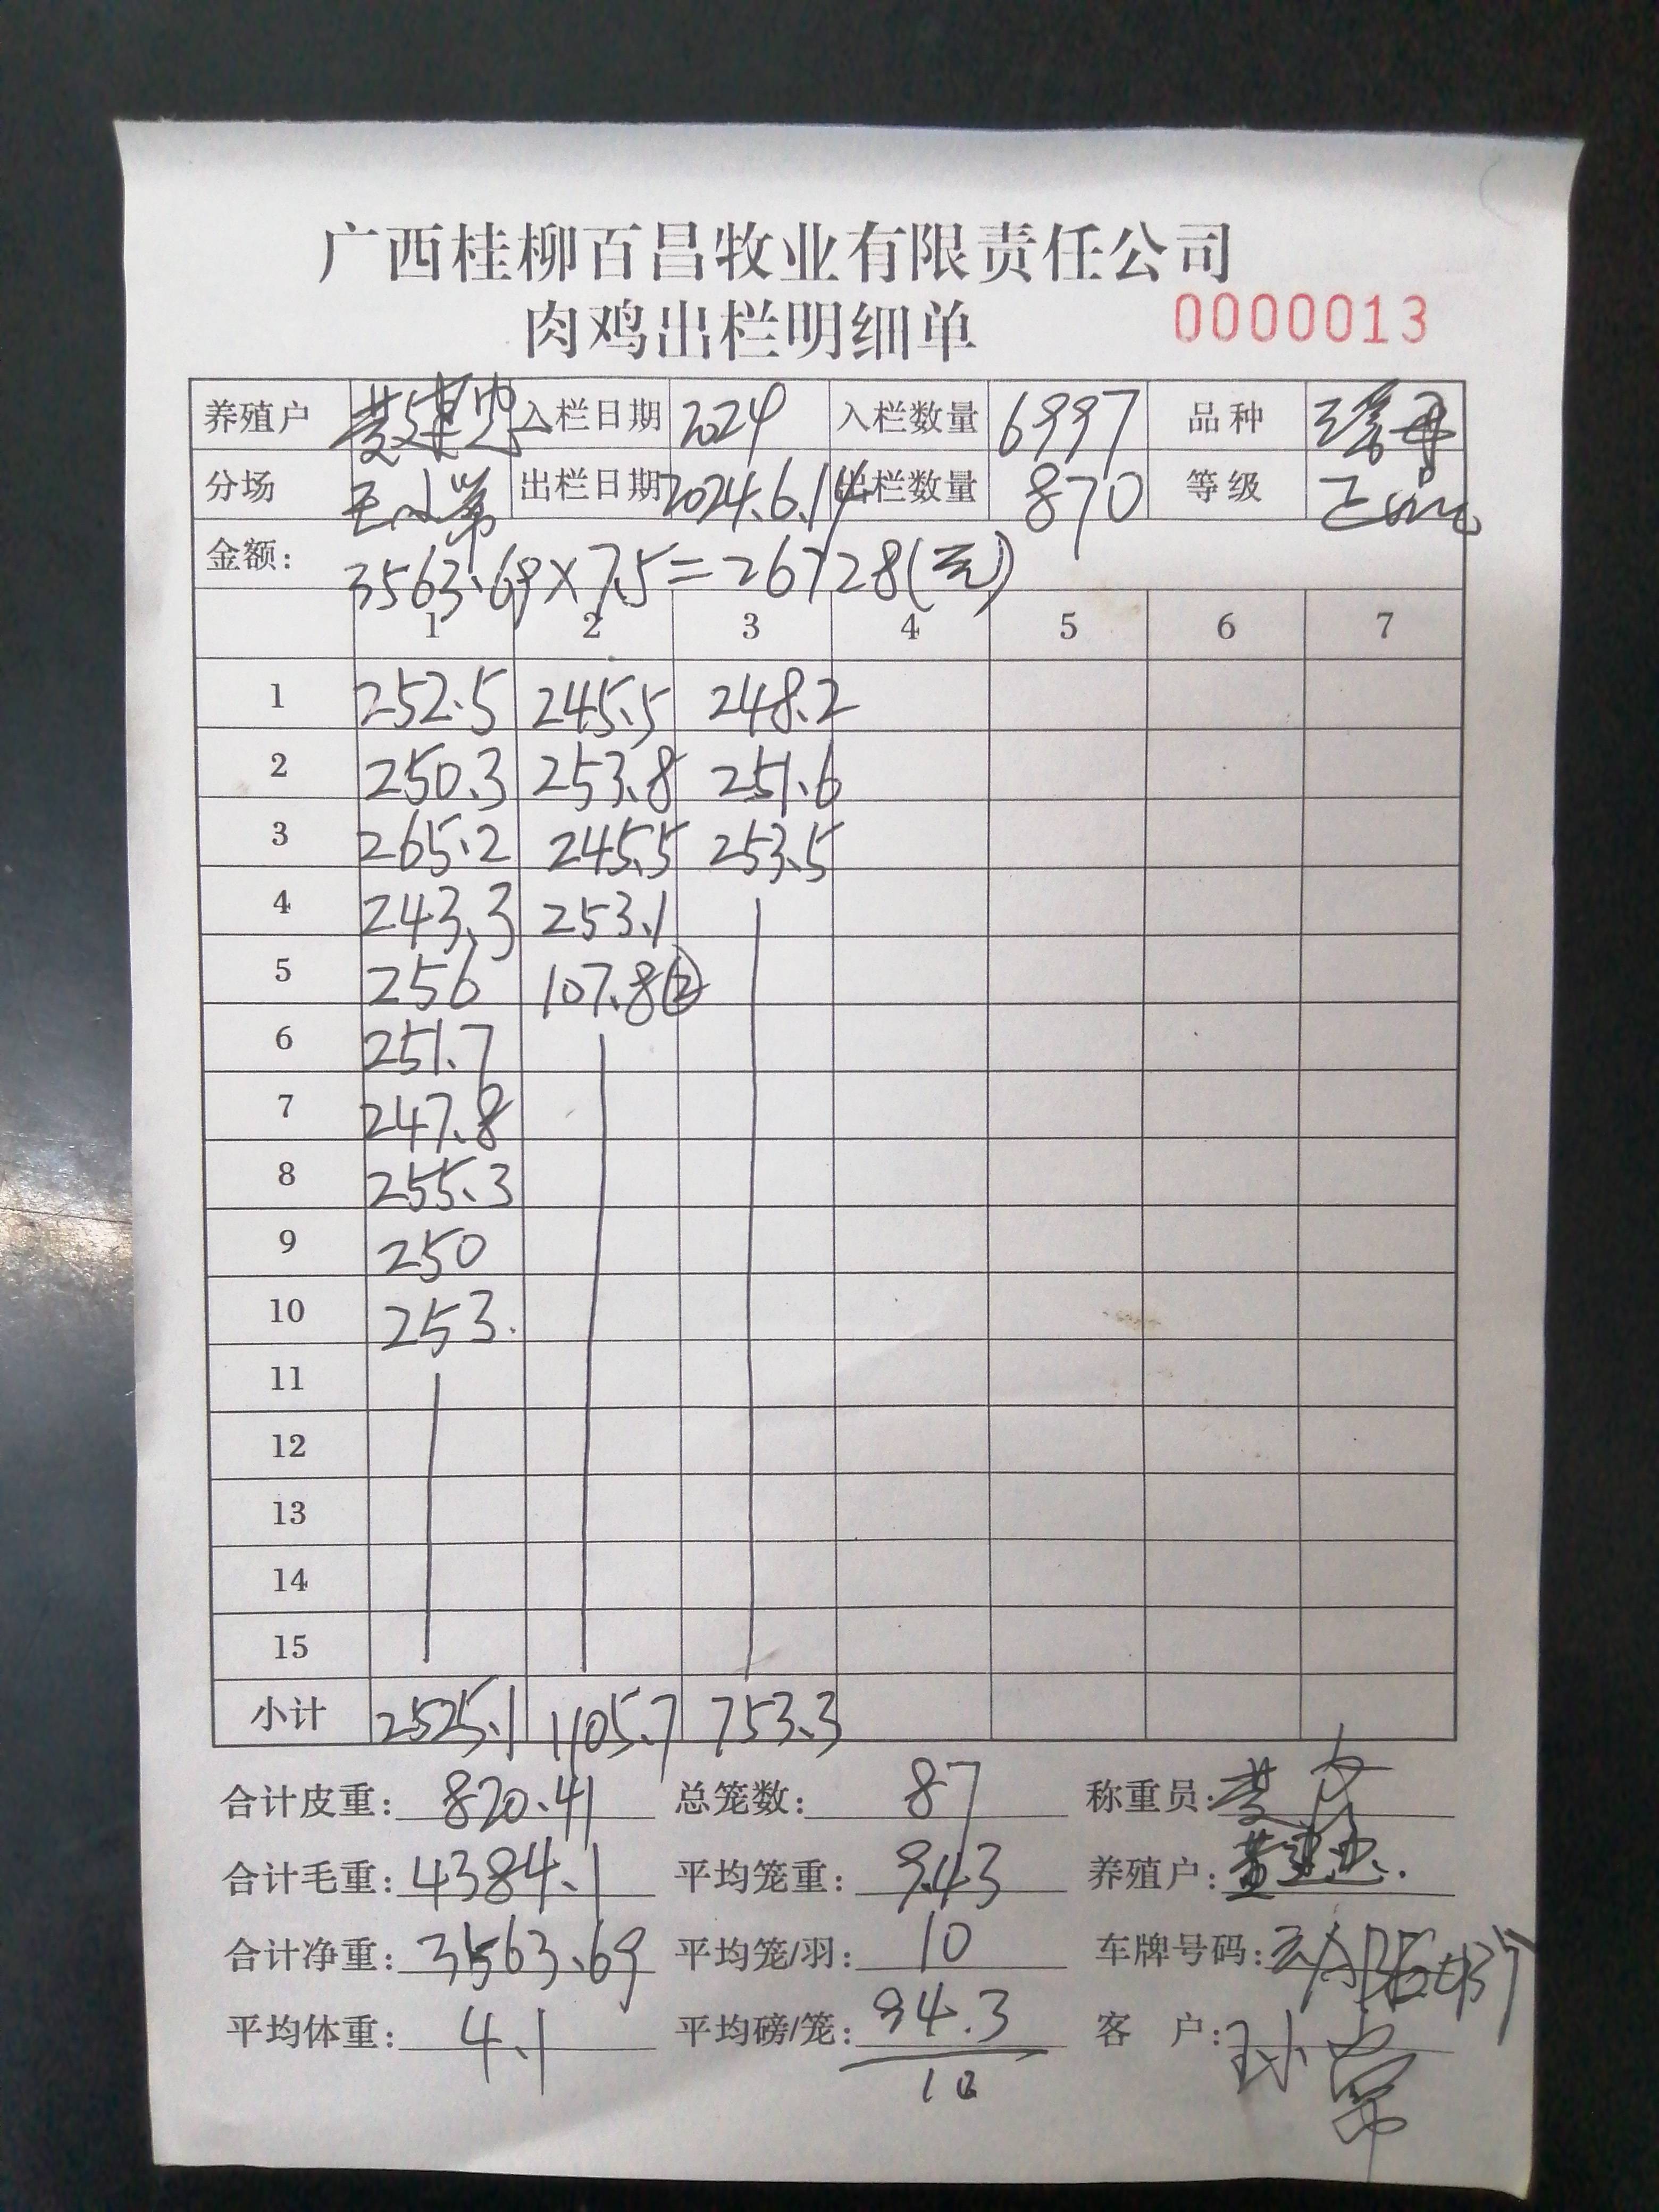 广西桂柳百昌牧业有限责任公司
肉鸡出栏明细单 0000013
养殖户 入栏日期 2024 入栏数量 6997 品种 瑶母
分场 出栏日期 2024.6.14 出栏数量 870 等级 正品
金额: 3563.69×7.5=26728(元)
1 2 3 4 5 6 7
1 252.5 245.5 248.2
2 250.3 253.8 251.6
3 265.2 245.5 253.5
4 243.3 253.1
5 256 107.8②
6 251.7
7 247.8
8 255.3
9 250
10 253.
11
12
13
14
15
小计 2525.1 1105.7 753.3
合计皮重: 820.41 总笼数: 87 称重员:
合计毛重: 4384.1 平均笼重: 9.43 养殖户:
合计净重: 3563.69 平均笼/羽: 10 车牌号码:
平均体重: 4.1 平均磅/笼: 94.3 客 户:
10